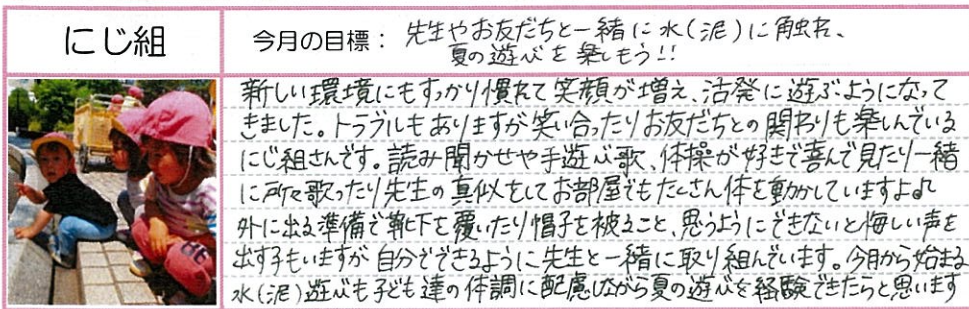 にじ組
今月の目標： 先生やお友だちと一緒に水(泥)に触れ、
夏の遊びを楽しもう!!
新しい環境にもすっかり慣れて笑顔が増え、活発に遊ぶようになって
きました。トラブルもありますが笑い合ったりお友だちとの関わりも楽しんでいる
にじ組さんです。読み聞かせや手遊び歌、体操が好きで喜んで見たり一緒
に所々歌ったり先生の真似をしてお部屋でもたくさん体を動かしていますよ♪
外に出る準備で靴下を履いたり帽子を被ること、思うようにできないと悔しい声を
出す子もいますが自分でできるように先生と一緒に取り組んでいます。今月から始まる
水(泥)遊びも子ども達の体調に配慮しながら夏の遊びを経験できたらと思います